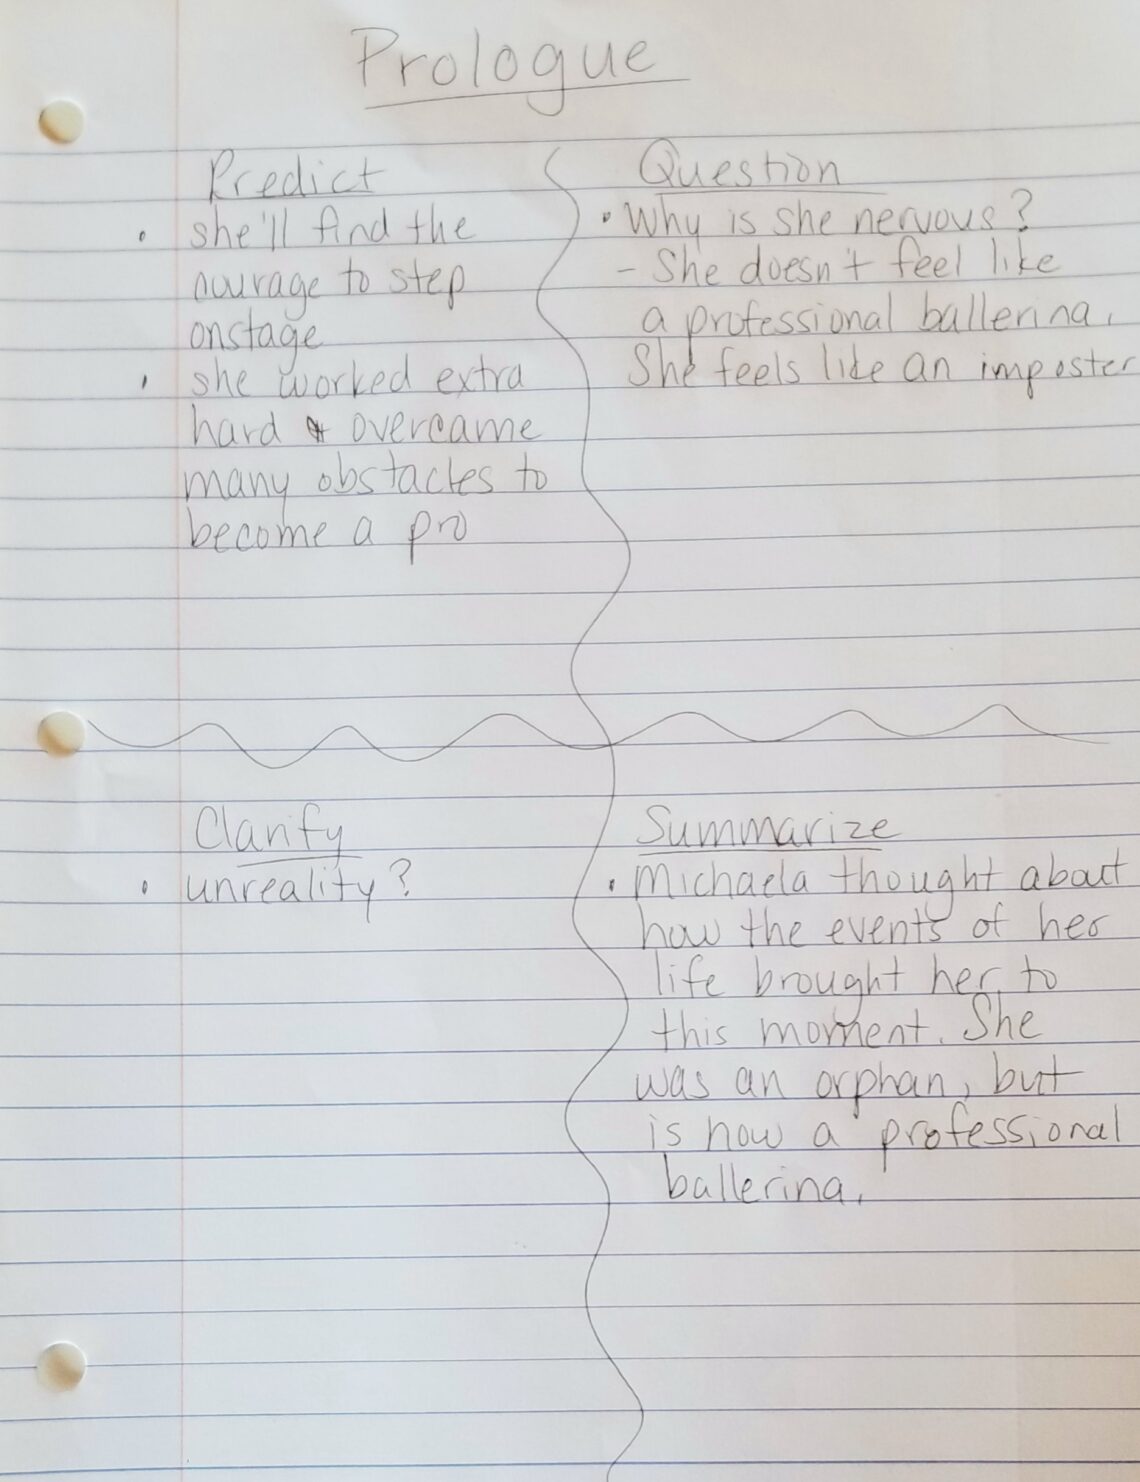 Prologue
Predict
• she'll find the
courage to step
onstage
• she worked extra
hard & overcame
many obstacles to
become a pro
Question
• Why is she nervous?
- She doesn't feel like
a professional ballerina.
She feels like an imposter
Clarify
• unreality?
Summarize
• Michaela thought about
how the events of her
life brought her to
this moment. She
was an orphan, but
is now a professional
ballerina.